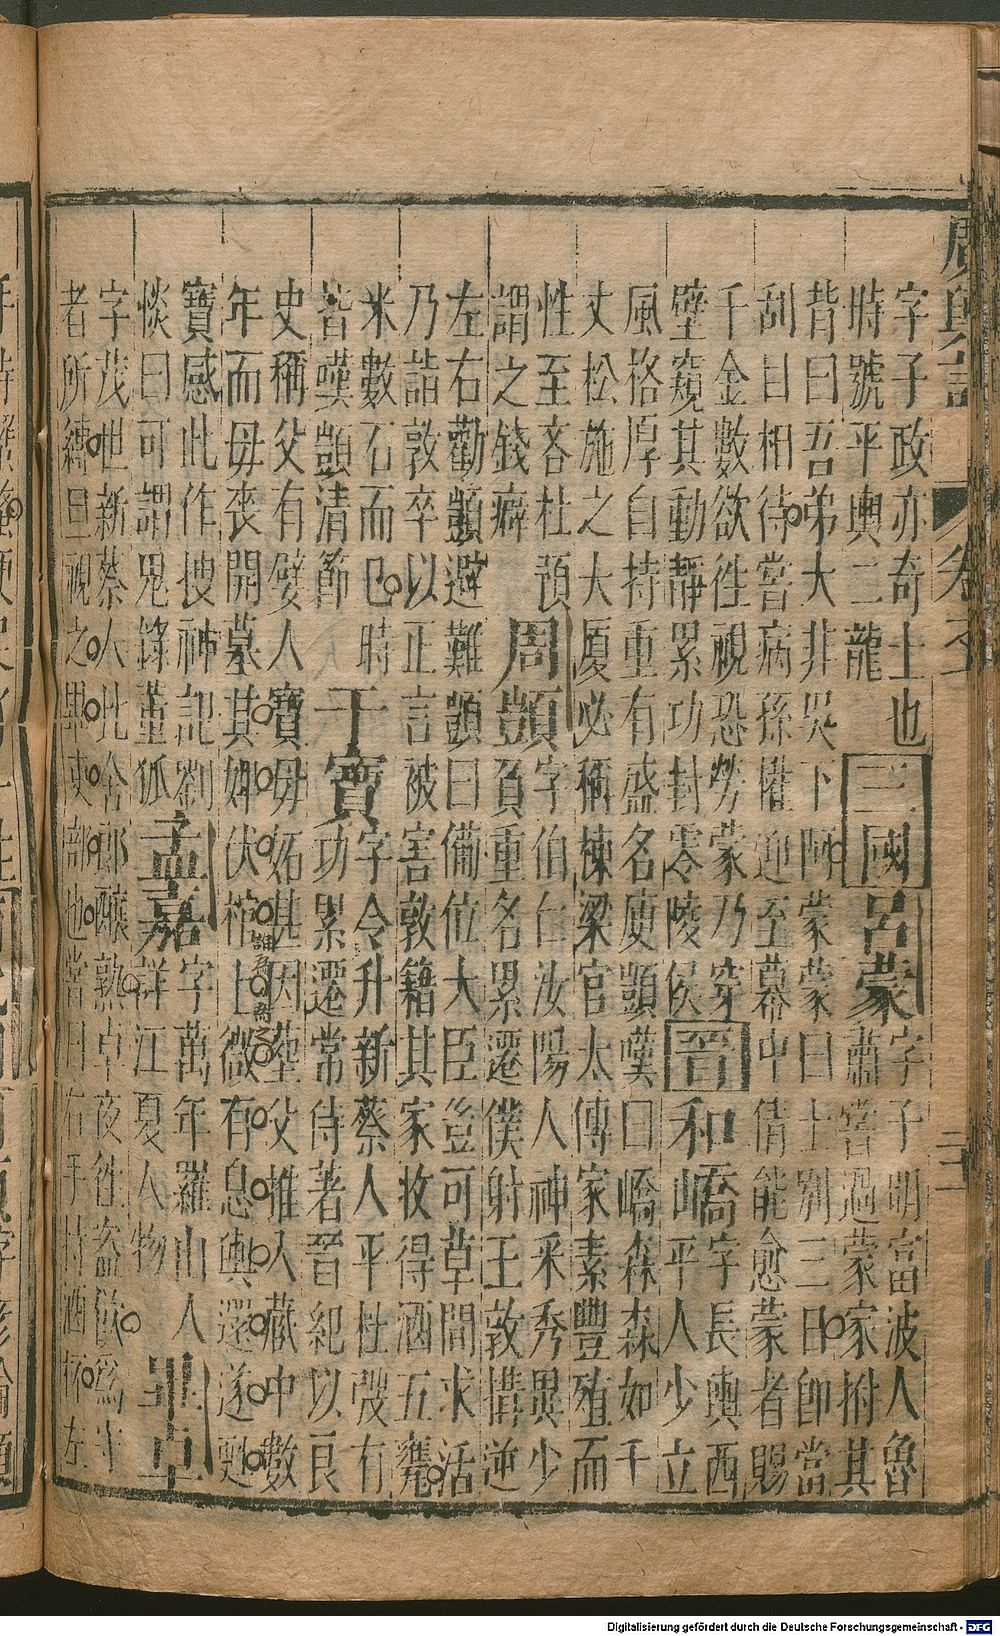 廣輿記 卷六 二十
字子政亦奇士也三國呂蒙字子明富波人魯
時號平輿二龍 肅嘗過蒙家拊其
背曰吾弟大非吳下阿蒙蒙曰士別三日卽當
刮目相待嘗病孫權迎至幕中倩能愈蒙者賜
千金數欲徃視恐勞蒙乃穿
壁窺其動靜累功封零陵侯晉和嶠字長輿西
平人少立
風格厚自持重有盛名庾顗嘆曰嶠森森如千
丈松施之大厦必稱棟梁官太傳家素豐殖而
性至吝杜預
謂之錢癖 周顗字伯仁汝陽人神釆秀異少
負重名累遷僕射王敦搆逆
左右勸顗避難顗曰備位大臣豈可草間求活
乃詰敦卒以正言被害敦籍其家收得酒五甕
米數石而巳時
皆嘆顗清節 干寶字令升新蔡人平杜弢有
功累遷常侍著晉紀以良
史稱父有嬖人寶毋妬甚因塟父推入藏中數
年而毋丧開墓其婢伏棺上微有息輿還遂甦
寶感此作搜神記劉
惔曰可謂鬼董狐 孟嘉字萬年羅山人
詳江夏人物 畢卓
字茂世新蔡人比舍郎釀熟卓夜徃盗飲爲
者所縛旦視之 吏部也嘗曰右手持酒杯左
Digitalisierung gefördert durch die Deutsche Forschungsgemeinschaft - DFG